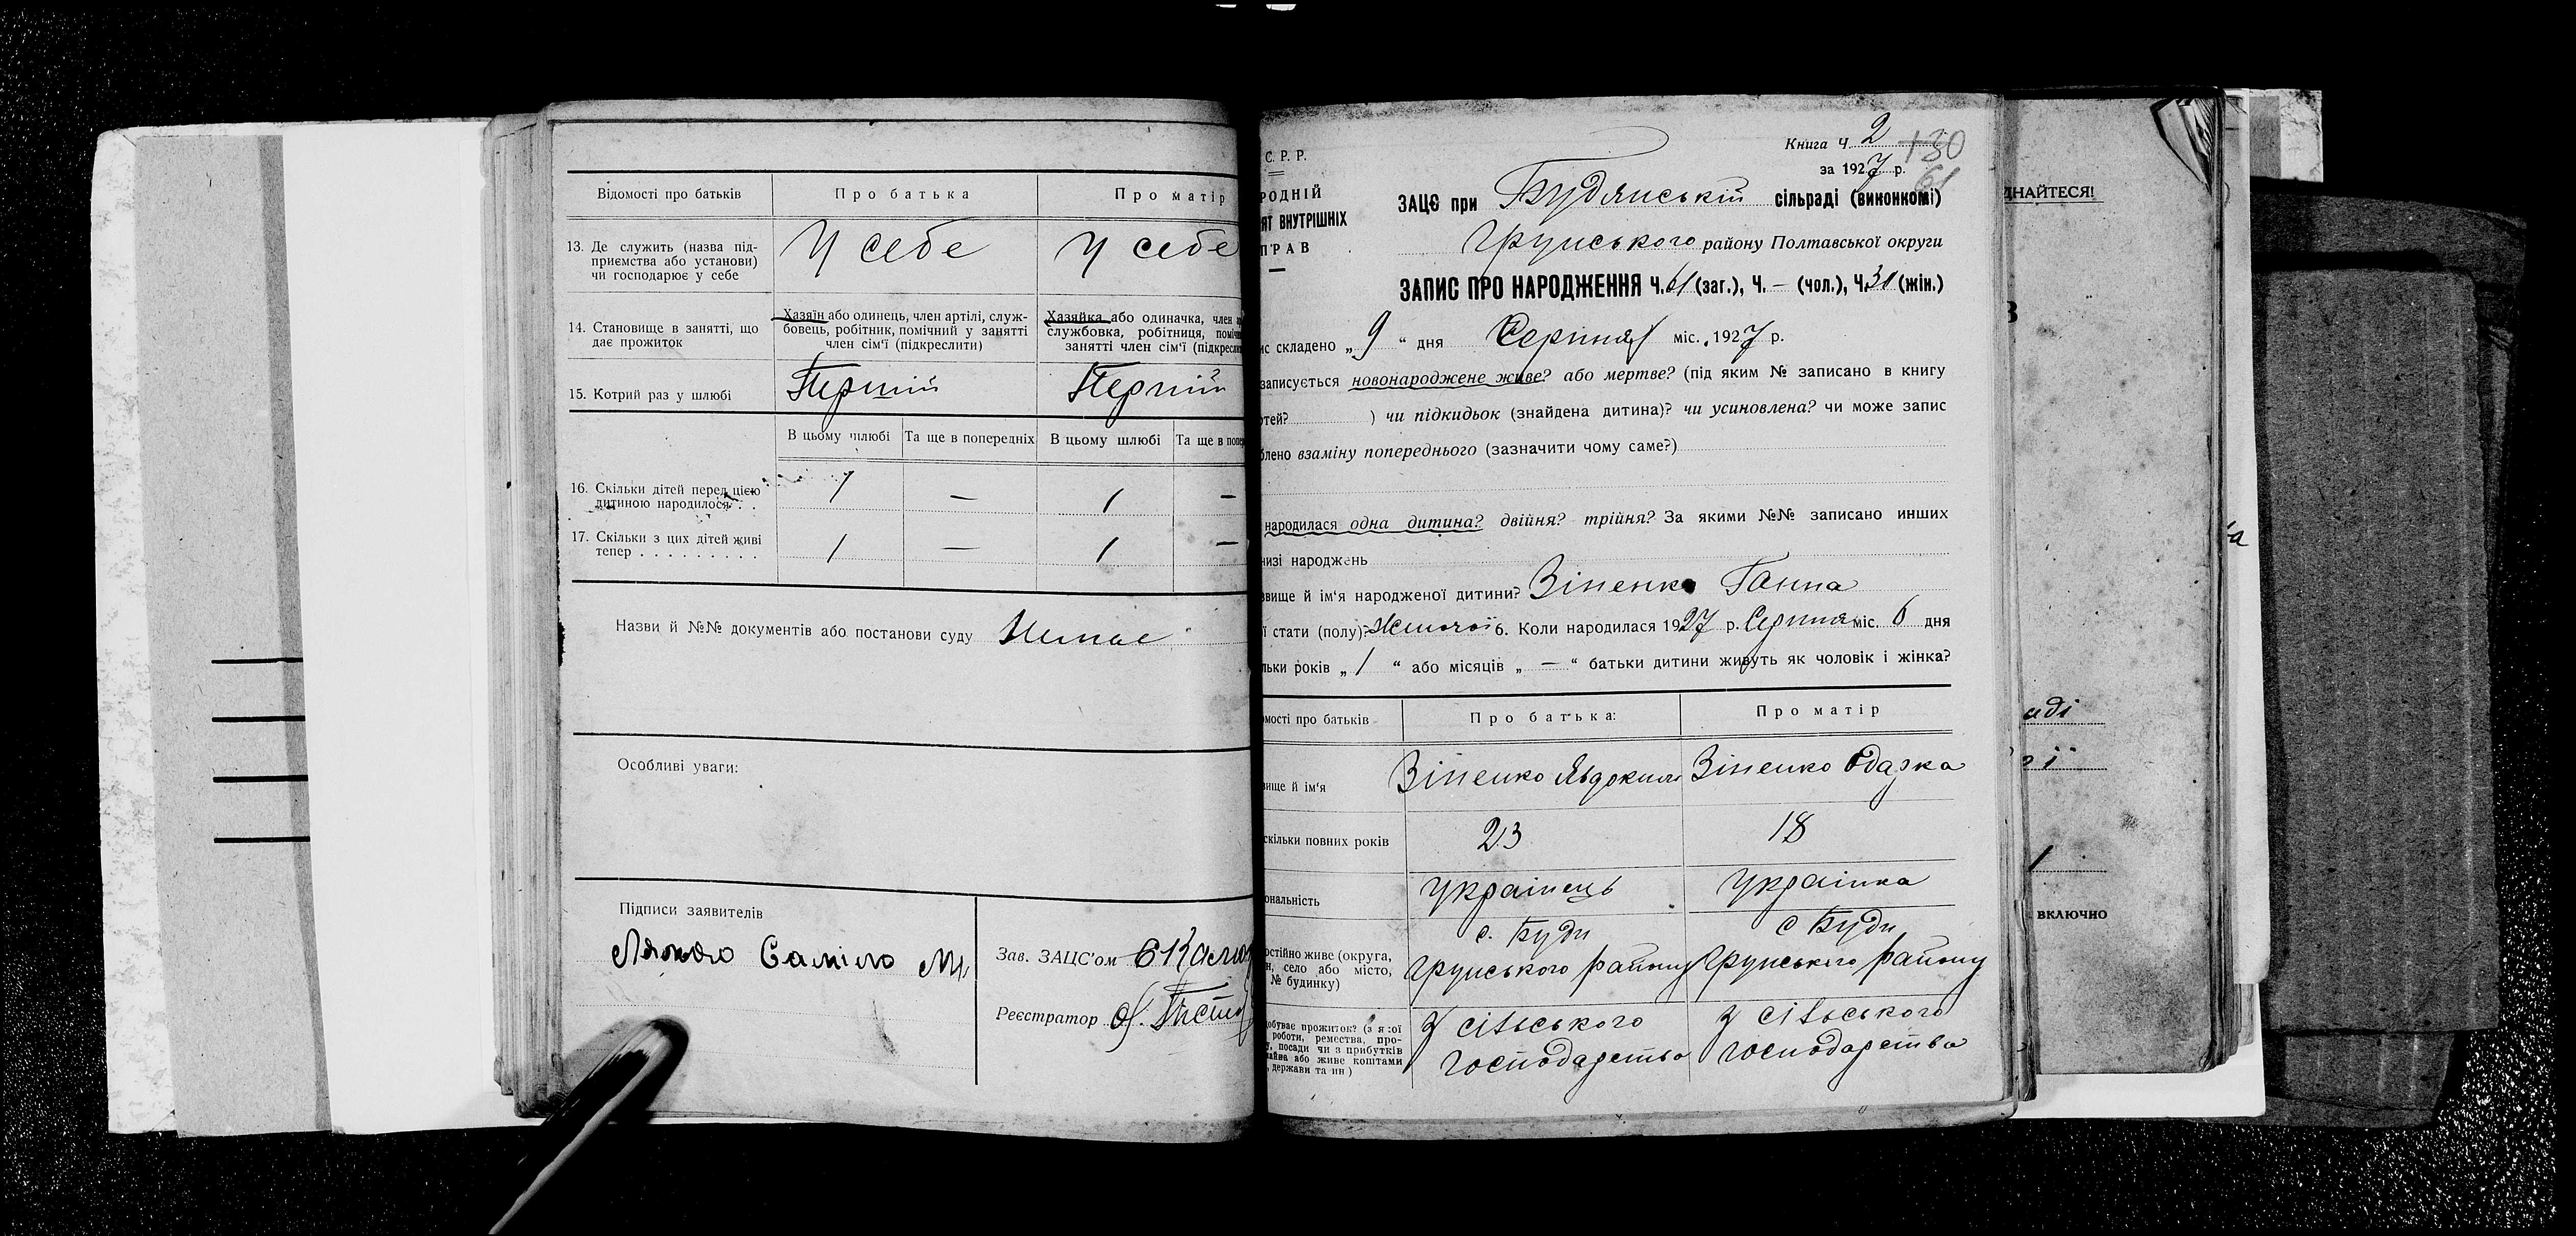 Відомості про батьків
Про батька
Про матір
13. Де служить (назва під-
приємства або установи)
чи господарює у себе
У себе
У себе
14. Становище в занятті, що
дає прожиток
Хазяїн або одинець, член артілі, служ-
бовець, робітник, помічний у занятті
член сім'ї (підкреслити)
Хазяйка або одиначка, член
службовка, робітниця,
занятті член сім'ї
15. Котрий раз у шлюбі
Першій
Першій
В цьому шлюбі
Та ще в попередніх
В цьому шлюбі
Та ще в
16. Скільки дітей перед цією
дитиною народилося . .
1
—
1
—
17. Скільки з цих дітей живі
тепер . . . . . . . . .
1
—
1
—
Назви й №№ документів або постанови суду Немає
Особливі уваги:
Підписи заявителів
Саміло
Зав. ЗАЦС'ом
Реєстратор
Книга Ч. 2
130
за 1927 р.
61
С. Р. Р.
РОДНІЙ
ЯТ ВНУТРІШНІХ
ПРАВ
ЗАЦС при Будянській сільраді (виконкомі)
Грунського району Полтавської округи
ЗАПИС ПРО НАРОДЖЕННЯ Ч. 61 (заг.), Ч. — (чол.), Ч. 31 (жін.)
ис складено „9“ дня Серпня міс. 1927 р.
записується новонароджене живе? або мертве? (під яким № записано в книгу
ртей? ) чи підкидьок (знайдена дитина)? чи усиновлена? чи може запис
блено взаміну попереднього (зазначити чому саме?)
народилася одна дитина? двійня? трійня? За якими №№ записано инших
низі народжень
звище й ім'я народженої дитини? Зіненко Ганна
ї стати (полу): Жіночої 6. Коли народилася 1927 р. Серпня міс. 6 дня
льки років „1“ або місяців „—“ батьки дитини живуть як чоловік і жінка?
омості про батьків
Про батька:
Про матір
вище й ім'я
Зіненко Явдоким
Зіненко Одарка
скільки повних років
23
18
ональність
Українець
Українка
остійно живе (округа,
н, село або місто,
№ будинку)
с. Буди
Грунського району
с Буди
Грунського району
обуває прожиток? (з якої
роботи, ремества, про-
, посади чи з прибутків
майна або живе коштами
, держави та ин)
З сільського
господарства
З сільського
господарства
ДНАЙТЕСЯ!
аді
ї
1
включно